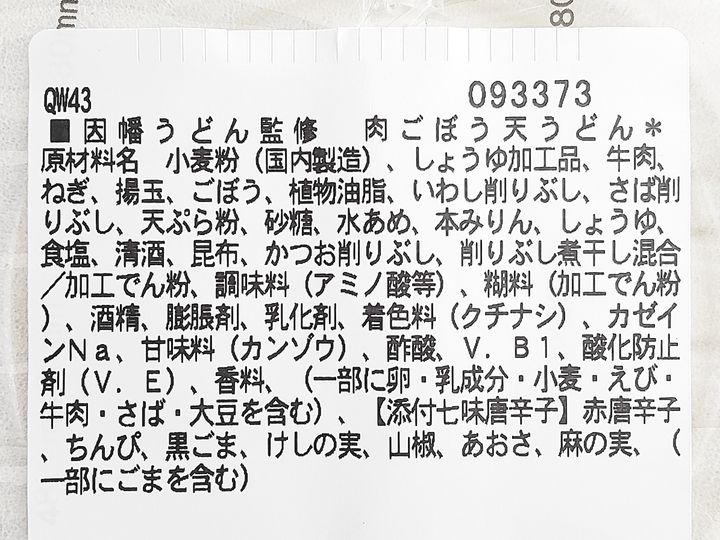 QW43 093373
■因幡うどん監修 肉ごぼう天うどん＊
原材料名 小麦粉（国内製造）、しょうゆ加工品、牛肉、
ねぎ、揚玉、ごぼう、植物油脂、いわし削りぶし、さば削
りぶし、天ぷら粉、砂糖、水あめ、本みりん、しょうゆ、
食塩、清酒、昆布、かつお削りぶし、削りぶし煮干し混合
／加工でん粉、調味料（アミノ酸等）、糊料（加工でん粉
）、酒精、膨脹剤、乳化剤、着色料（クチナシ）、カゼイ
ンＮａ、甘味料（カンゾウ）、酢酸、Ｖ．Ｂ１、酸化防止
剤（Ｖ．Ｅ）、香料、（一部に卵・乳成分・小麦・えび・
牛肉・さば・大豆を含む）、【添付七味唐辛子】赤唐辛子
、ちんぴ、黒ごま、けしの実、山椒、あおさ、麻の実、（
一部にごまを含む）